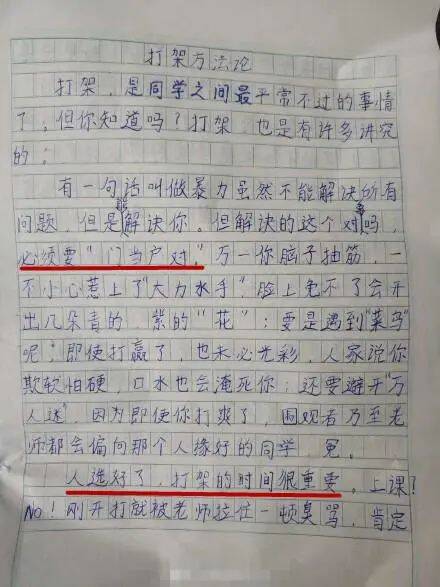 打架方法论
打架，是同学之间最平常不过的事情
了。但你知道吗？打架，也是有许多讲究
的：
有一句话叫做暴力虽然不能解决所有
问题，但是能解决你。但解决的这个对象，
必须要“门当户对”。万一你脑子抽筋，一
不小心惹上了“大力水手”，脸上免不了会开
出几朵青的，紫的“花”；要是遇到“菜鸟”
呢，即使打赢了，也未必光彩，人家说你
欺软怕硬，口水也会淹死你；还要避开“万
人迷”，因为即使你打爽了，围观者乃至老
师都会偏向那个人缘好的同学，冤。
人选好了，打架的时间很重要。上课？
No！刚开打就被老师拉住一顿臭骂，肯定